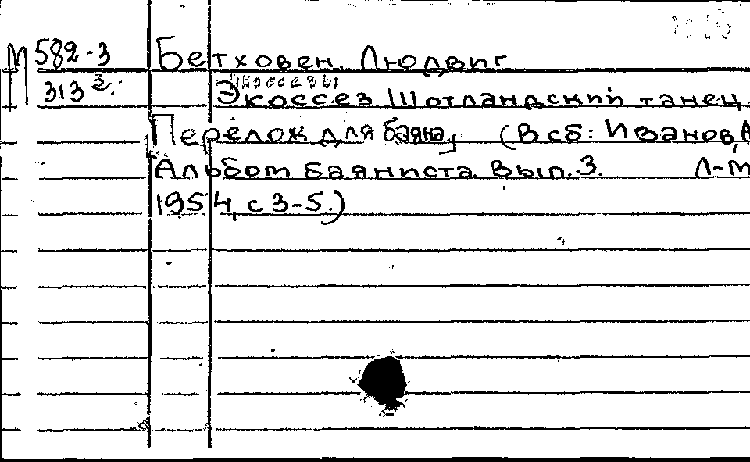 М 582-3 Бетховен, Людвиг
313 2. Экоссезы
Экоссез Шотландский танец.
Перелож для баяна, (В сб: Иванов, А
Альбом баяниста. Вып. 3. Л-М
1954, с 3-5.)